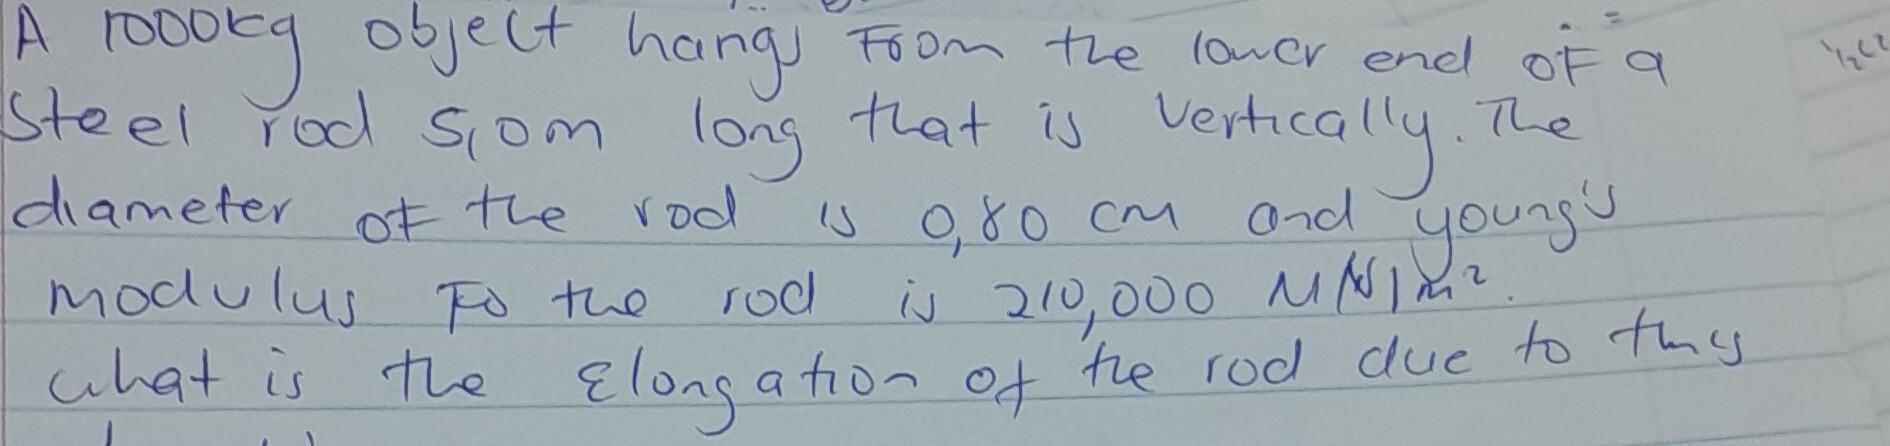 A 1000kg object hangs From the lower end of a
Steel rod 5,0m long that is Vertically. The
diameter of the rod is 0,80 cm and young's
modulus Fo the rod is 210,000 MN/m².
what is the Elongation of the rod due to this